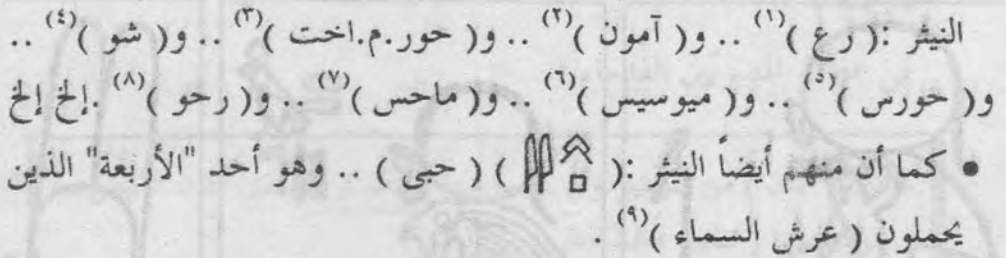 النيثر :( رع )(١) .. و( آمون )(٢) .. و( حور.م.اخت )(٣) .. و( شو )(٤) ..
و( حورس )(٥) .. و( ميوسيس )(٦) .. و( ماحس )(٧) .. و( رحو )(٨) .إلخ إلخ
• كما أن منهم أيضاً النيثر :( ) ( حبى ) .. وهو أحد "الأربعة" الذين
يحملون ( عرش السماء )(٩) .